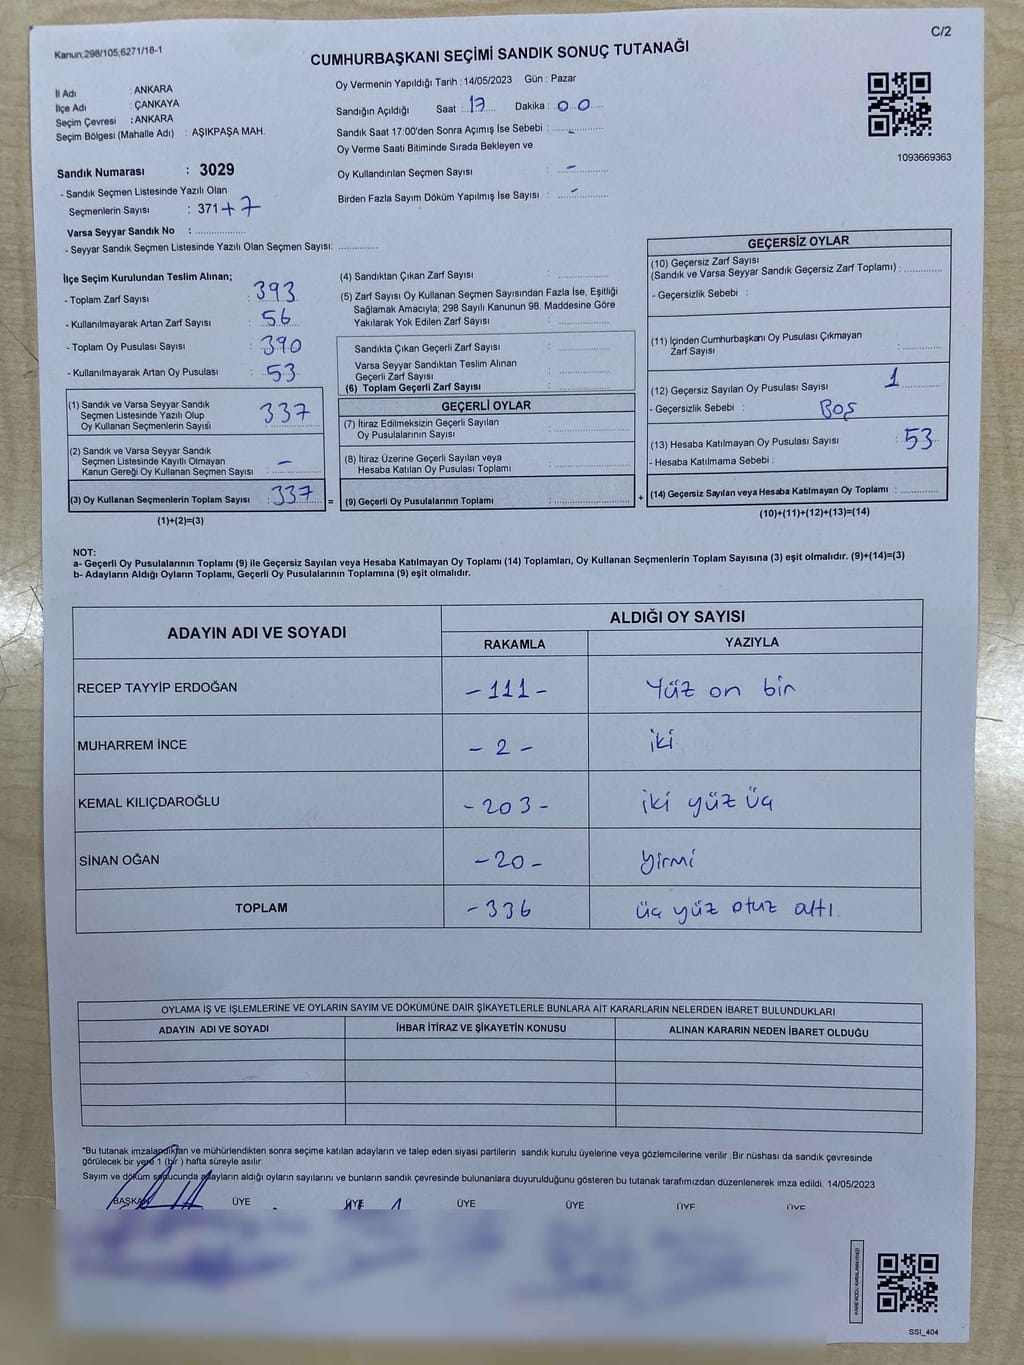 Kanun:298/105,6271/18-1
C/2
CUMHURBAŞKANI SEÇİMİ SANDIK SONUÇ TUTANAĞI
İl Adı : ANKARA
İlçe Adı : ÇANKAYA
Seçim Çevresi : ANKARA
Seçim Bölgesi (Mahalle Adı) : AŞIKPAŞA MAH.
Oy Vermenin Yapıldığı Tarih : 14/05/2023 Gün : Pazar
Sandığın Açıldığı Saat : 17 Dakika : 00
Sandık Saat 17:00'den Sonra Açımış İse Sebebi : -
Oy Verme Saati Bitiminde Sırada Bekleyen ve
Oy Kullandırılan Seçmen Sayısı : -
Birden Fazla Sayım Döküm Yapılmış İse Sayısı : -
1093669363
Sandık Numarası : 3029
- Sandık Seçmen Listesinde Yazılı Olan
Seçmenlerin Sayısı : 371 + 7
Varsa Seyyar Sandık No :
- Seyyar Sandık Seçmen Listesinde Yazılı Olan Seçmen Sayısı:
İlçe Seçim Kurulundan Teslim Alınan;
- Toplam Zarf Sayısı : 393
- Kullanılmayarak Artan Zarf Sayısı : 56
- Toplam Oy Pusulası Sayısı : 390
- Kullanılmayarak Artan Oy Pusulası : 53
(1) Sandık ve Varsa Seyyar Sandık
Seçmen Listesinde Yazılı Olup
Oy Kullanan Seçmenlerin Sayısı : 337
(2) Sandık ve Varsa Seyyar Sandık
Seçmen Listesinde Kayıtlı Olmayan
Kanun Gereği Oy Kullanan Seçmen Sayısı : -
(3) Oy Kullanan Seçmenlerin Toplam Sayısı : 337 =
(1)+(2)=(3)
(4) Sandıktan Çıkan Zarf Sayısı :
(5) Zarf Sayısı Oy Kullanan Seçmen Sayısından Fazla İse, Eşitliği
Sağlamak Amacıyla, 298 Sayılı Kanunun 98. Maddesine Göre
Yakılarak Yok Edilen Zarf Sayısı :
Sandıkta Çıkan Geçerli Zarf Sayısı :
Varsa Seyyar Sandıktan Teslim Alınan
Geçerli Zarf Sayısı :
(6) Toplam Geçerli Zarf Sayısı :
GEÇERLİ OYLAR
(7) İtiraz Edilmeksizin Geçerli Sayılan
Oy Pusulalarının Sayısı :
(8) İtiraz Üzerine Geçerli Sayılan veya
Hesaba Katılan Oy Pusulası Toplamı :
(9) Geçerli Oy Pusulalarının Toplamı : +
GEÇERSİZ OYLAR
(10) Geçersiz Zarf Sayısı
(Sandık ve Varsa Seyyar Sandık Geçersiz Zarf Toplamı) :
- Geçersizlik Sebebi :
(11) İçinden Cumhurbaşkanı Oy Pusulası Çıkmayan
Zarf Sayısı :
(12) Geçersiz Sayılan Oy Pusulası Sayısı : 1
- Geçersizlik Sebebi : Boş
(13) Hesaba Katılmayan Oy Pusulası Sayısı : 53
- Hesaba Katılmama Sebebi :
(14) Geçersiz Sayılan veya Hesaba Katılmayan Oy Toplamı :
(10)+(11)+(12)+(13)=(14)
NOT:
a- Geçerli Oy Pusulalarının Toplamı (9) ile Geçersiz Sayılan veya Hesaba Katılmayan Oy Toplamı (14) Toplamları, Oy Kullanan Seçmenlerin Toplam Sayısına (3) eşit olmalıdır. (9)+(14)=(3)
b- Adayların Aldığı Oyların Toplamı, Geçerli Oy Pusulalarının Toplamına (9) eşit olmalıdır.
ADAYIN ADI VE SOYADI
ALDIĞI OY SAYISI
RAKAMLA YAZIYLA
RECEP TAYYİP ERDOĞAN -111- Yüz on bir
MUHARREM İNCE -2- iki
KEMAL KILIÇDAROĞLU -203- iki yüz üç
SİNAN OĞAN -20- yirmi
TOPLAM -336 üç yüz otuz altı.
OYLAMA İŞ VE İŞLEMLERİNE VE OYLARIN SAYIM VE DÖKÜMÜNE DAİR ŞİKAYETLERLE BUNLARA AİT KARARLARIN NELERDEN İBARET BULUNDUKLARI
ADAYIN ADI VE SOYADI İHBAR İTİRAZ VE ŞİKAYETİN KONUSU ALINAN KARARIN NEDEN İBARET OLDUĞU
*Bu tutanak imzalandıktan ve mühürlendikten sonra seçime katılan adayların ve talep eden siyasi partilerin sandık kurulu üyelerine veya gözlemcilerine verilir .Bir nüshası da sandık çevresinde
görülecek bir yere 1 (bir ) hafta süreyle asılır.
Sayım ve döküm sonucunda adayların aldığı oyların sayılarını ve bunların sandık çevresinde bulunanlara duyurulduğunu gösteren bu tutanak tarafımızdan düzenlenerek imza edildi. 14/05/2023
BAŞKAN ÜYE ÜYE ÜYE ÜYE ÜYE ÜYE
SSI_404